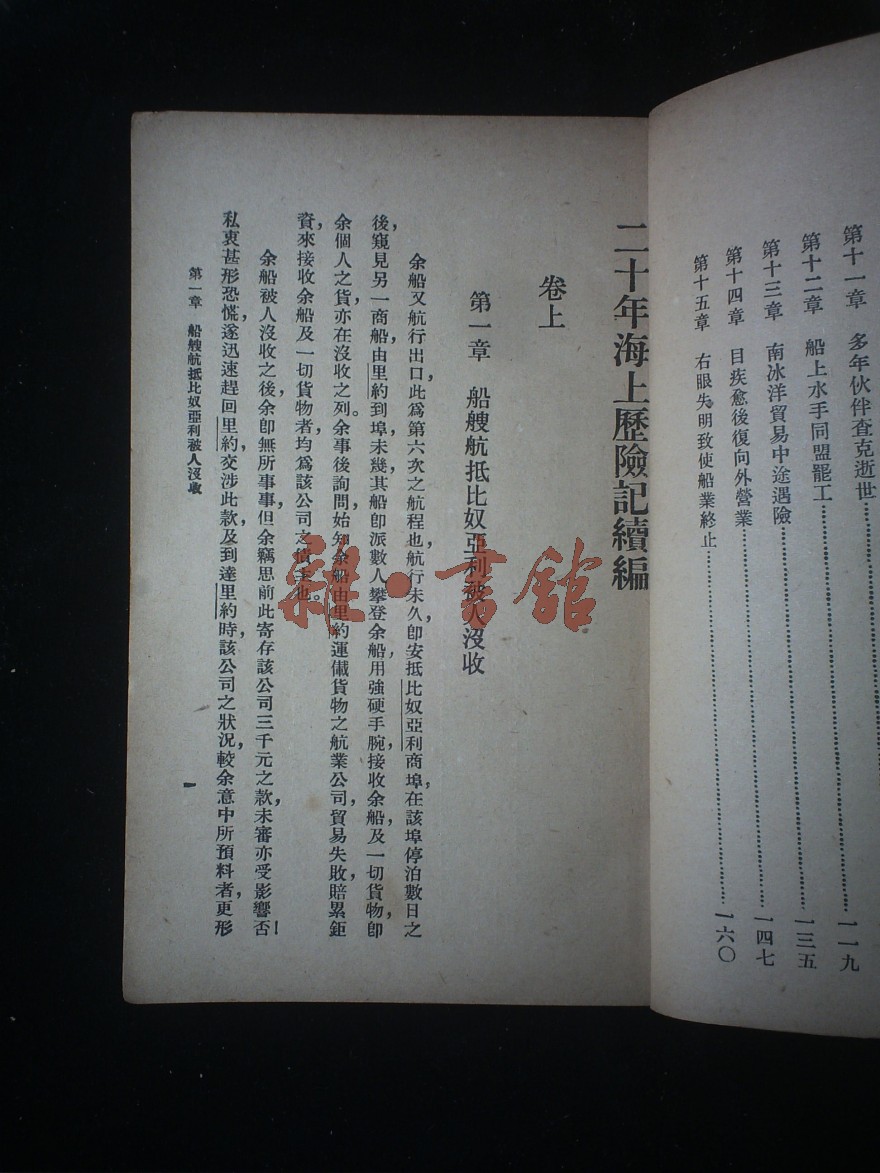 第十一章 多年伙伴查克逝世
第十二章 船上水手同盟罷工……一一九
第十三章 南冰洋貿易中途遇險……一三五
第十四章 目疾愈後復向外營業……一四七
第十五章 右眼失明致使船業終止……一六〇
二十年海上歷險記續編
卷上
第一章 船艘航抵比奴亞利被人沒收
余船又航行出口，此爲第六次之航程也。航行未久，卽安抵比奴亞利商埠，在該埠停泊數日之
後，窺見另一商船由里約到埠，未幾其船卽派數人攀登余船，用強硬手腕，接收余船及一切貨物，卽
余個人之貨，亦在沒收之列。余事後詢問，始知余船由里約運儎貨物之航業公司，貿易失敗，賠累鉅
資，來接收余船及一切貨物者，均爲該公司之債主也。
余船被人沒收之後，余卽無所事事，但余竊思前此寄存該公司三千元之款，未審亦受影響否！
私衷甚形恐慌，遂迅速趕回里約，交涉此款，及到達里約時，該公司之狀況，較余意中所預料者，更形
第一章 船艘航抵比奴亞利被人沒收
一
雜·書館